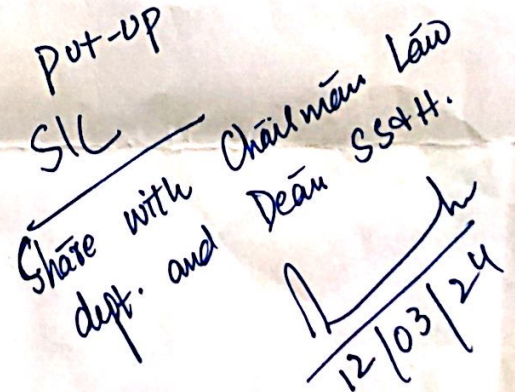 Put-up
SIL
Share with Chairman Law
dept. and Dean SS&H.
12/03/24